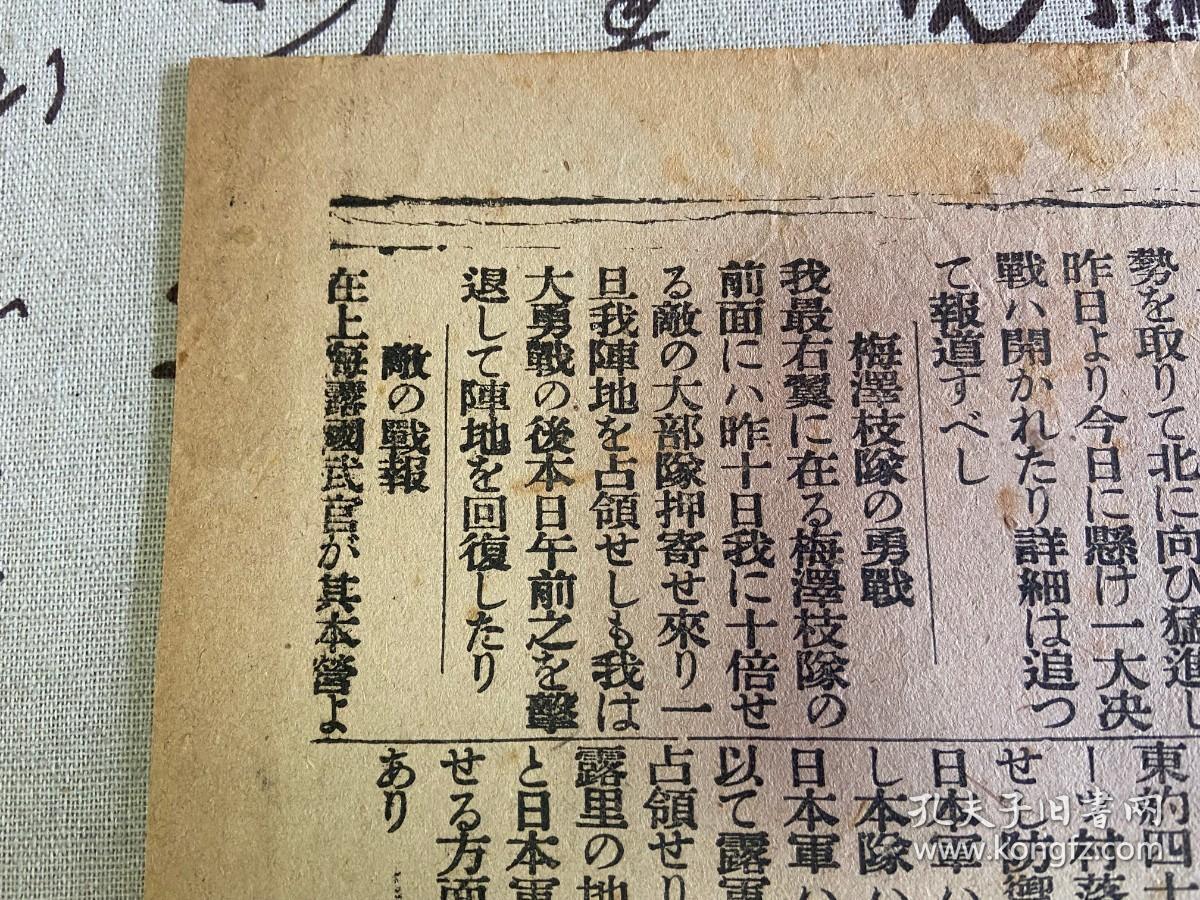 勢を取りて北に向ひ猛進し
昨日より今日に懸け一大决
戰ハ開かれたり詳細は追つ
て報道すべし
梅澤枝隊の勇戰
我最右翼に在る梅澤枝隊の
前面にハ昨十日我に十倍せ
る敵の大部隊押寄せ來り一
旦我陣地を占領せしも我は
大勇戰の後本日午前之を擊
退して陣地を回復したり
敵の戰報
在上海露國武官が其本營よ
東約四十
村落
せ防禦
日本軍ハ
し本隊ハ
日本軍ハ
以て露軍
占領せり
露里の地
と日本軍
せる方面
あり
孔夫子旧書网
www.kongfz.com